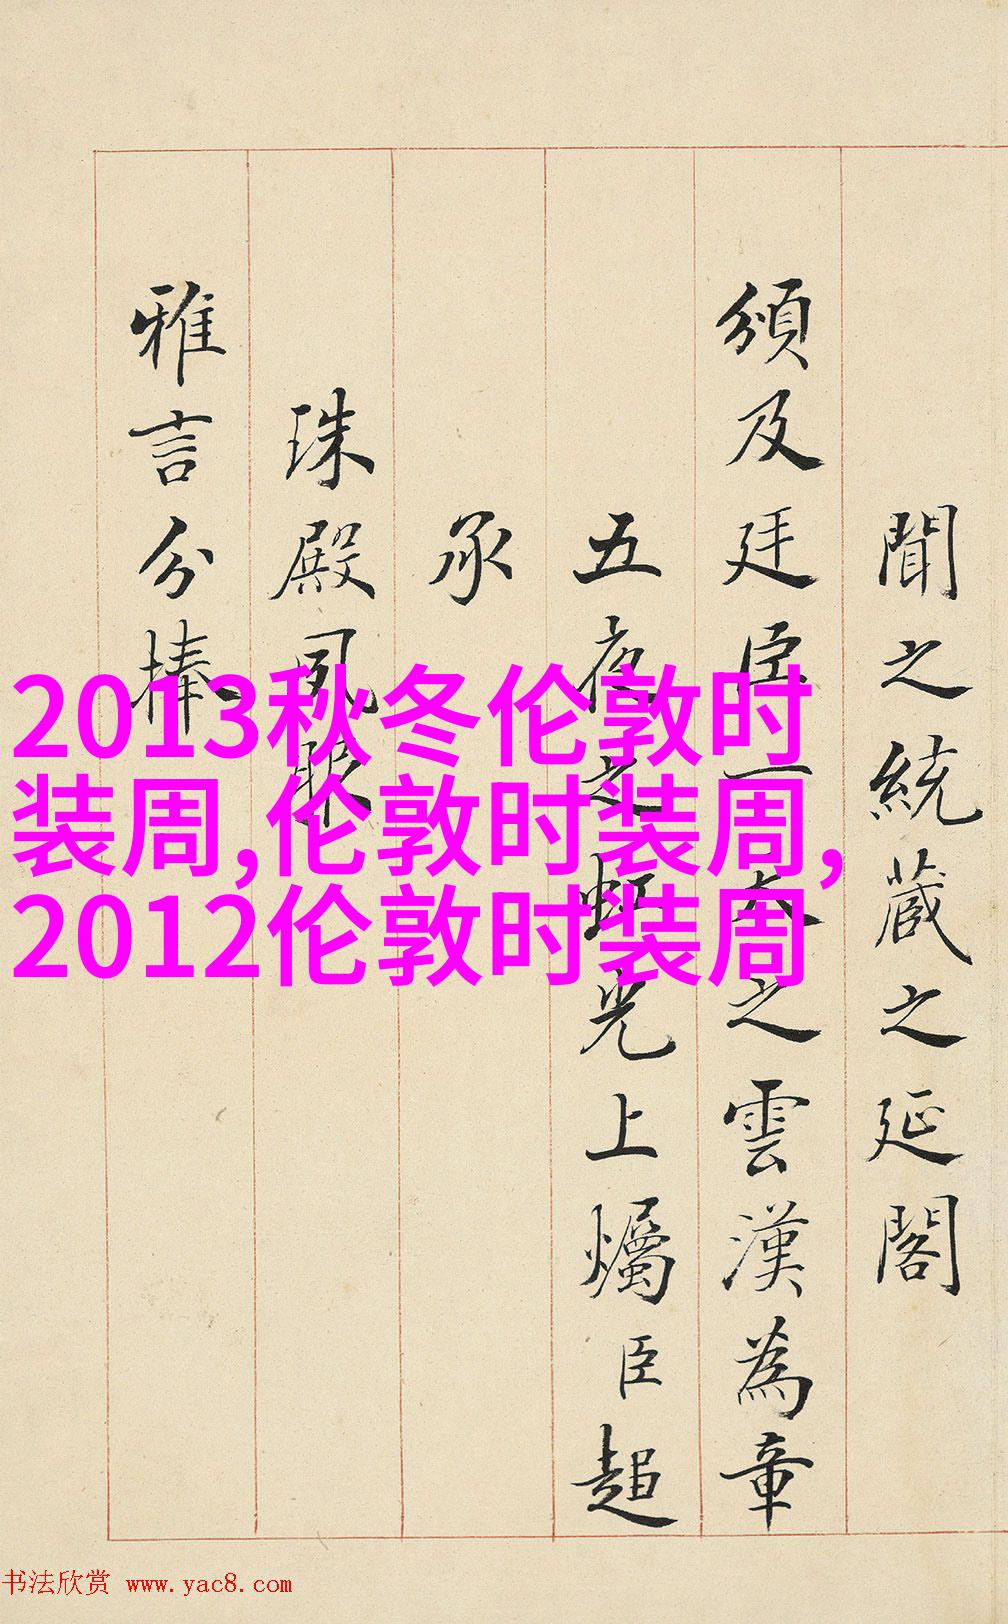 聞之統蔵之延閣
頒及廷臣一大之雲漢為章
五夜之虹光上燭臣超
承
珠殿夙眼
雅言分捧
2013秋冬伦敦时
装周,伦敦时装周,
2012伦敦时装周
书法欣赏 www.yac8.com